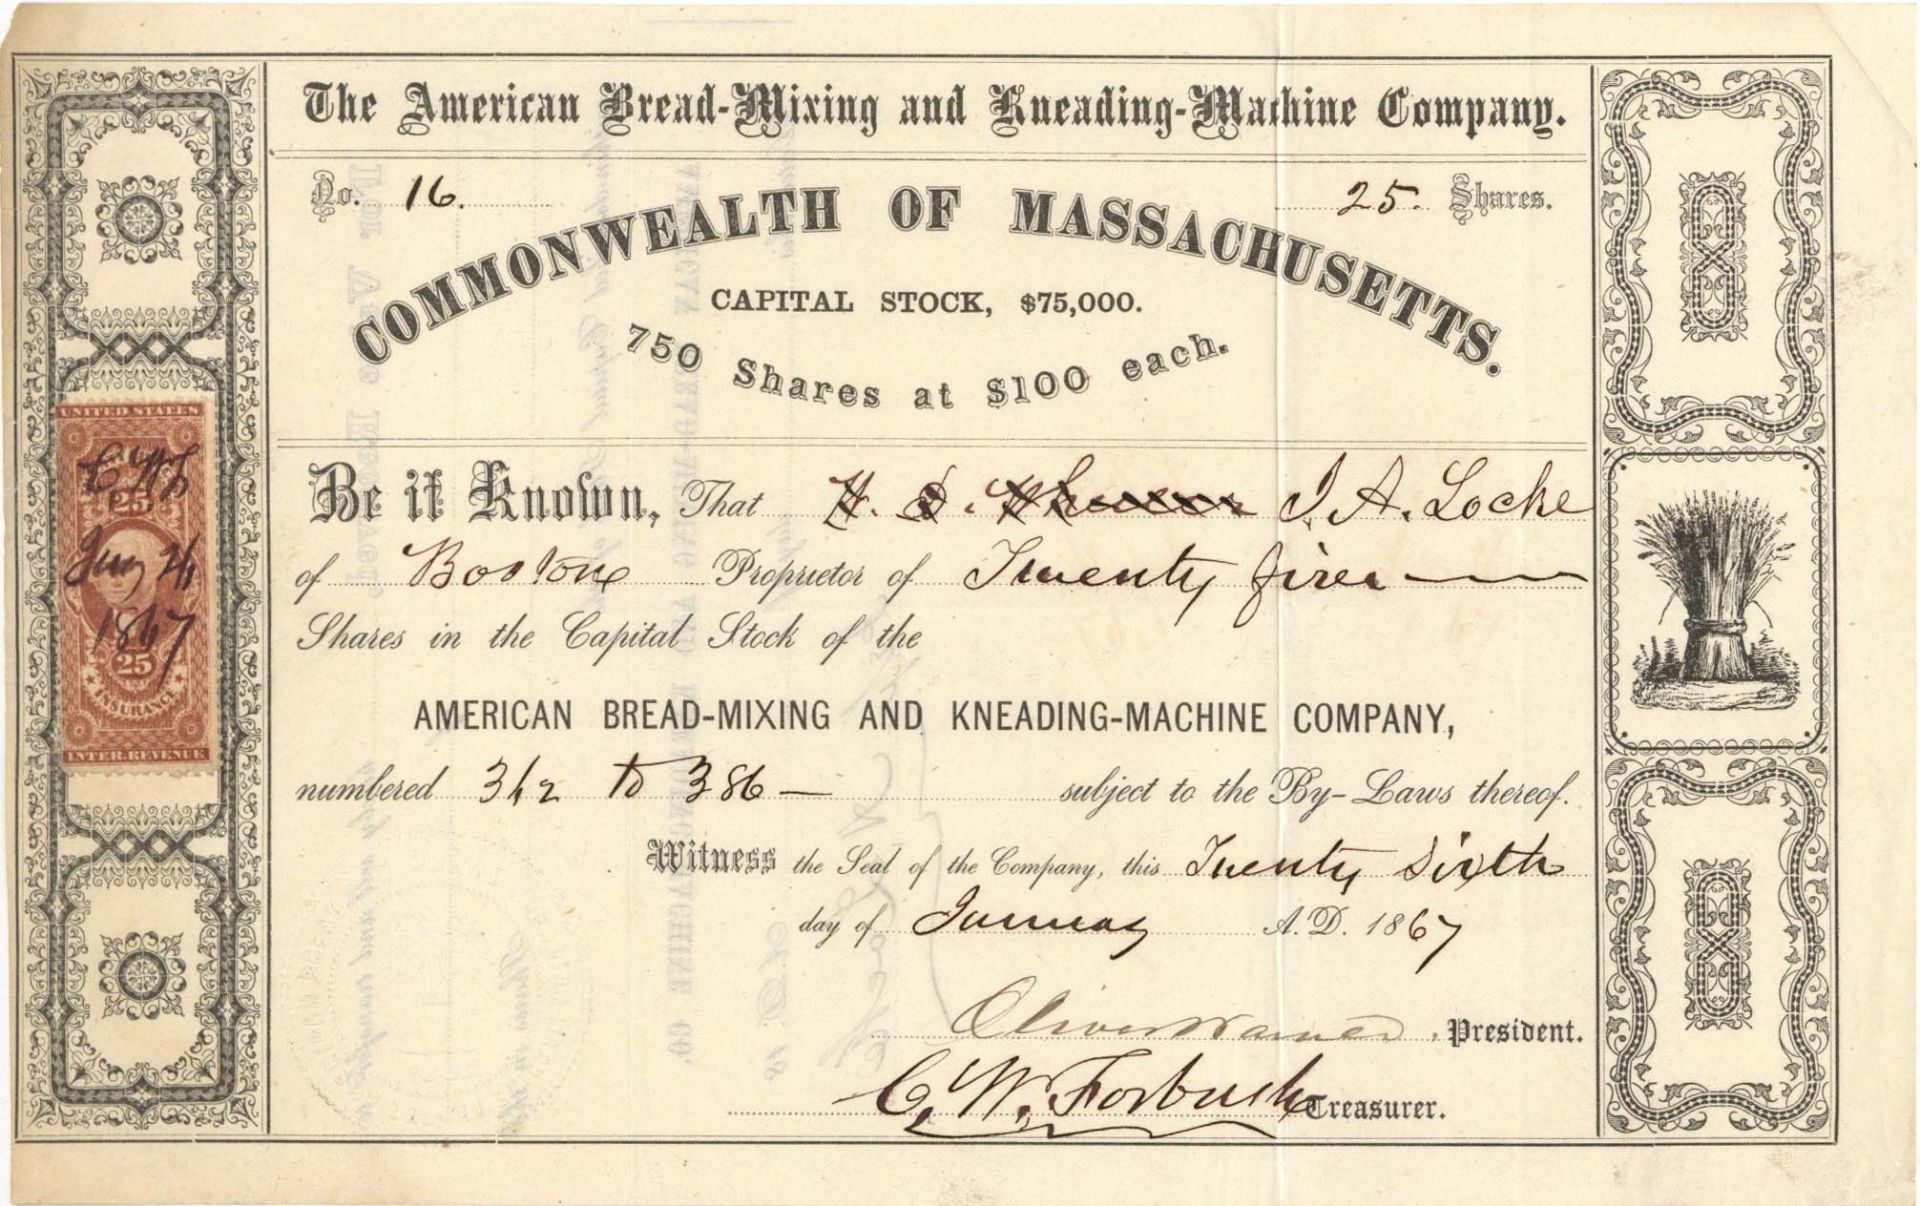 The American Bread-Mixing and Kneading-Machine Company.
No. 16. 25. Shares.
COMMONWEALTH OF MASSACHUSETTS.
CAPITAL STOCK, $75,000.
750 Shares at $100 each.
Be it Known, That H. D. J. A. Locke
of Boston Proprietor of Twenty five
Shares in the Capital Stock of the
AMERICAN BREAD-MIXING AND KNEADING-MACHINE COMPANY,
numbered 362 to 386 — subject to the By-Laws thereof.
Witness the Seal of the Company, this Twenty Sixth
day of January A.D. 1867
Oliver Warner, President.
C. W. Forbush Treasurer.
UNITED STATES
25
Jany 26
1867
25
INSURANCE
INTER. REVENUE